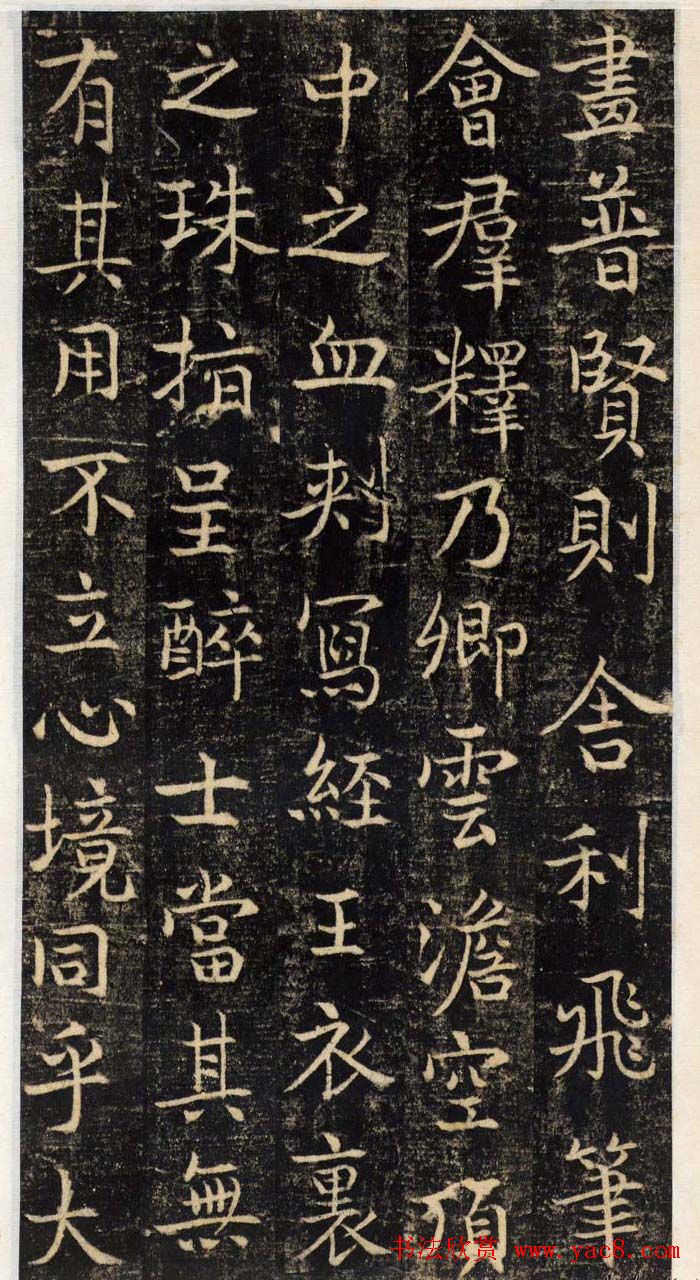 畫普賢則舍利飛筆
會羣釋乃卿雲澹空頂
中之血刾寫経王衣裏
之珠指呈醉士當其無
有其用不立心境同乎大
书法欣赏 www.yac8.com